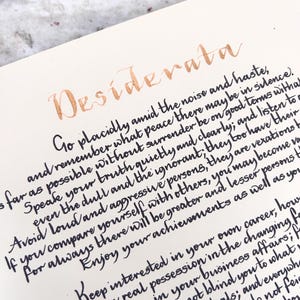 Desiderata
Go placidly amid the noise and haste,
and remember what peace there may be in silence.
s far as possible without surrender be on good terms with a
Speak your truth quietly and clearly; and listen to
even the dull and the ignorant; they too have their
Avoid loud and aggressive persons, they are vexations
If you compare yourself with others, you may become
for always there will be greater and lesser persons
Enjoy your achievements as well as yo
Keep interested in your own career, how
real possession in the changing f
in your business affairs;
not blind you to what
and everywh
not fei